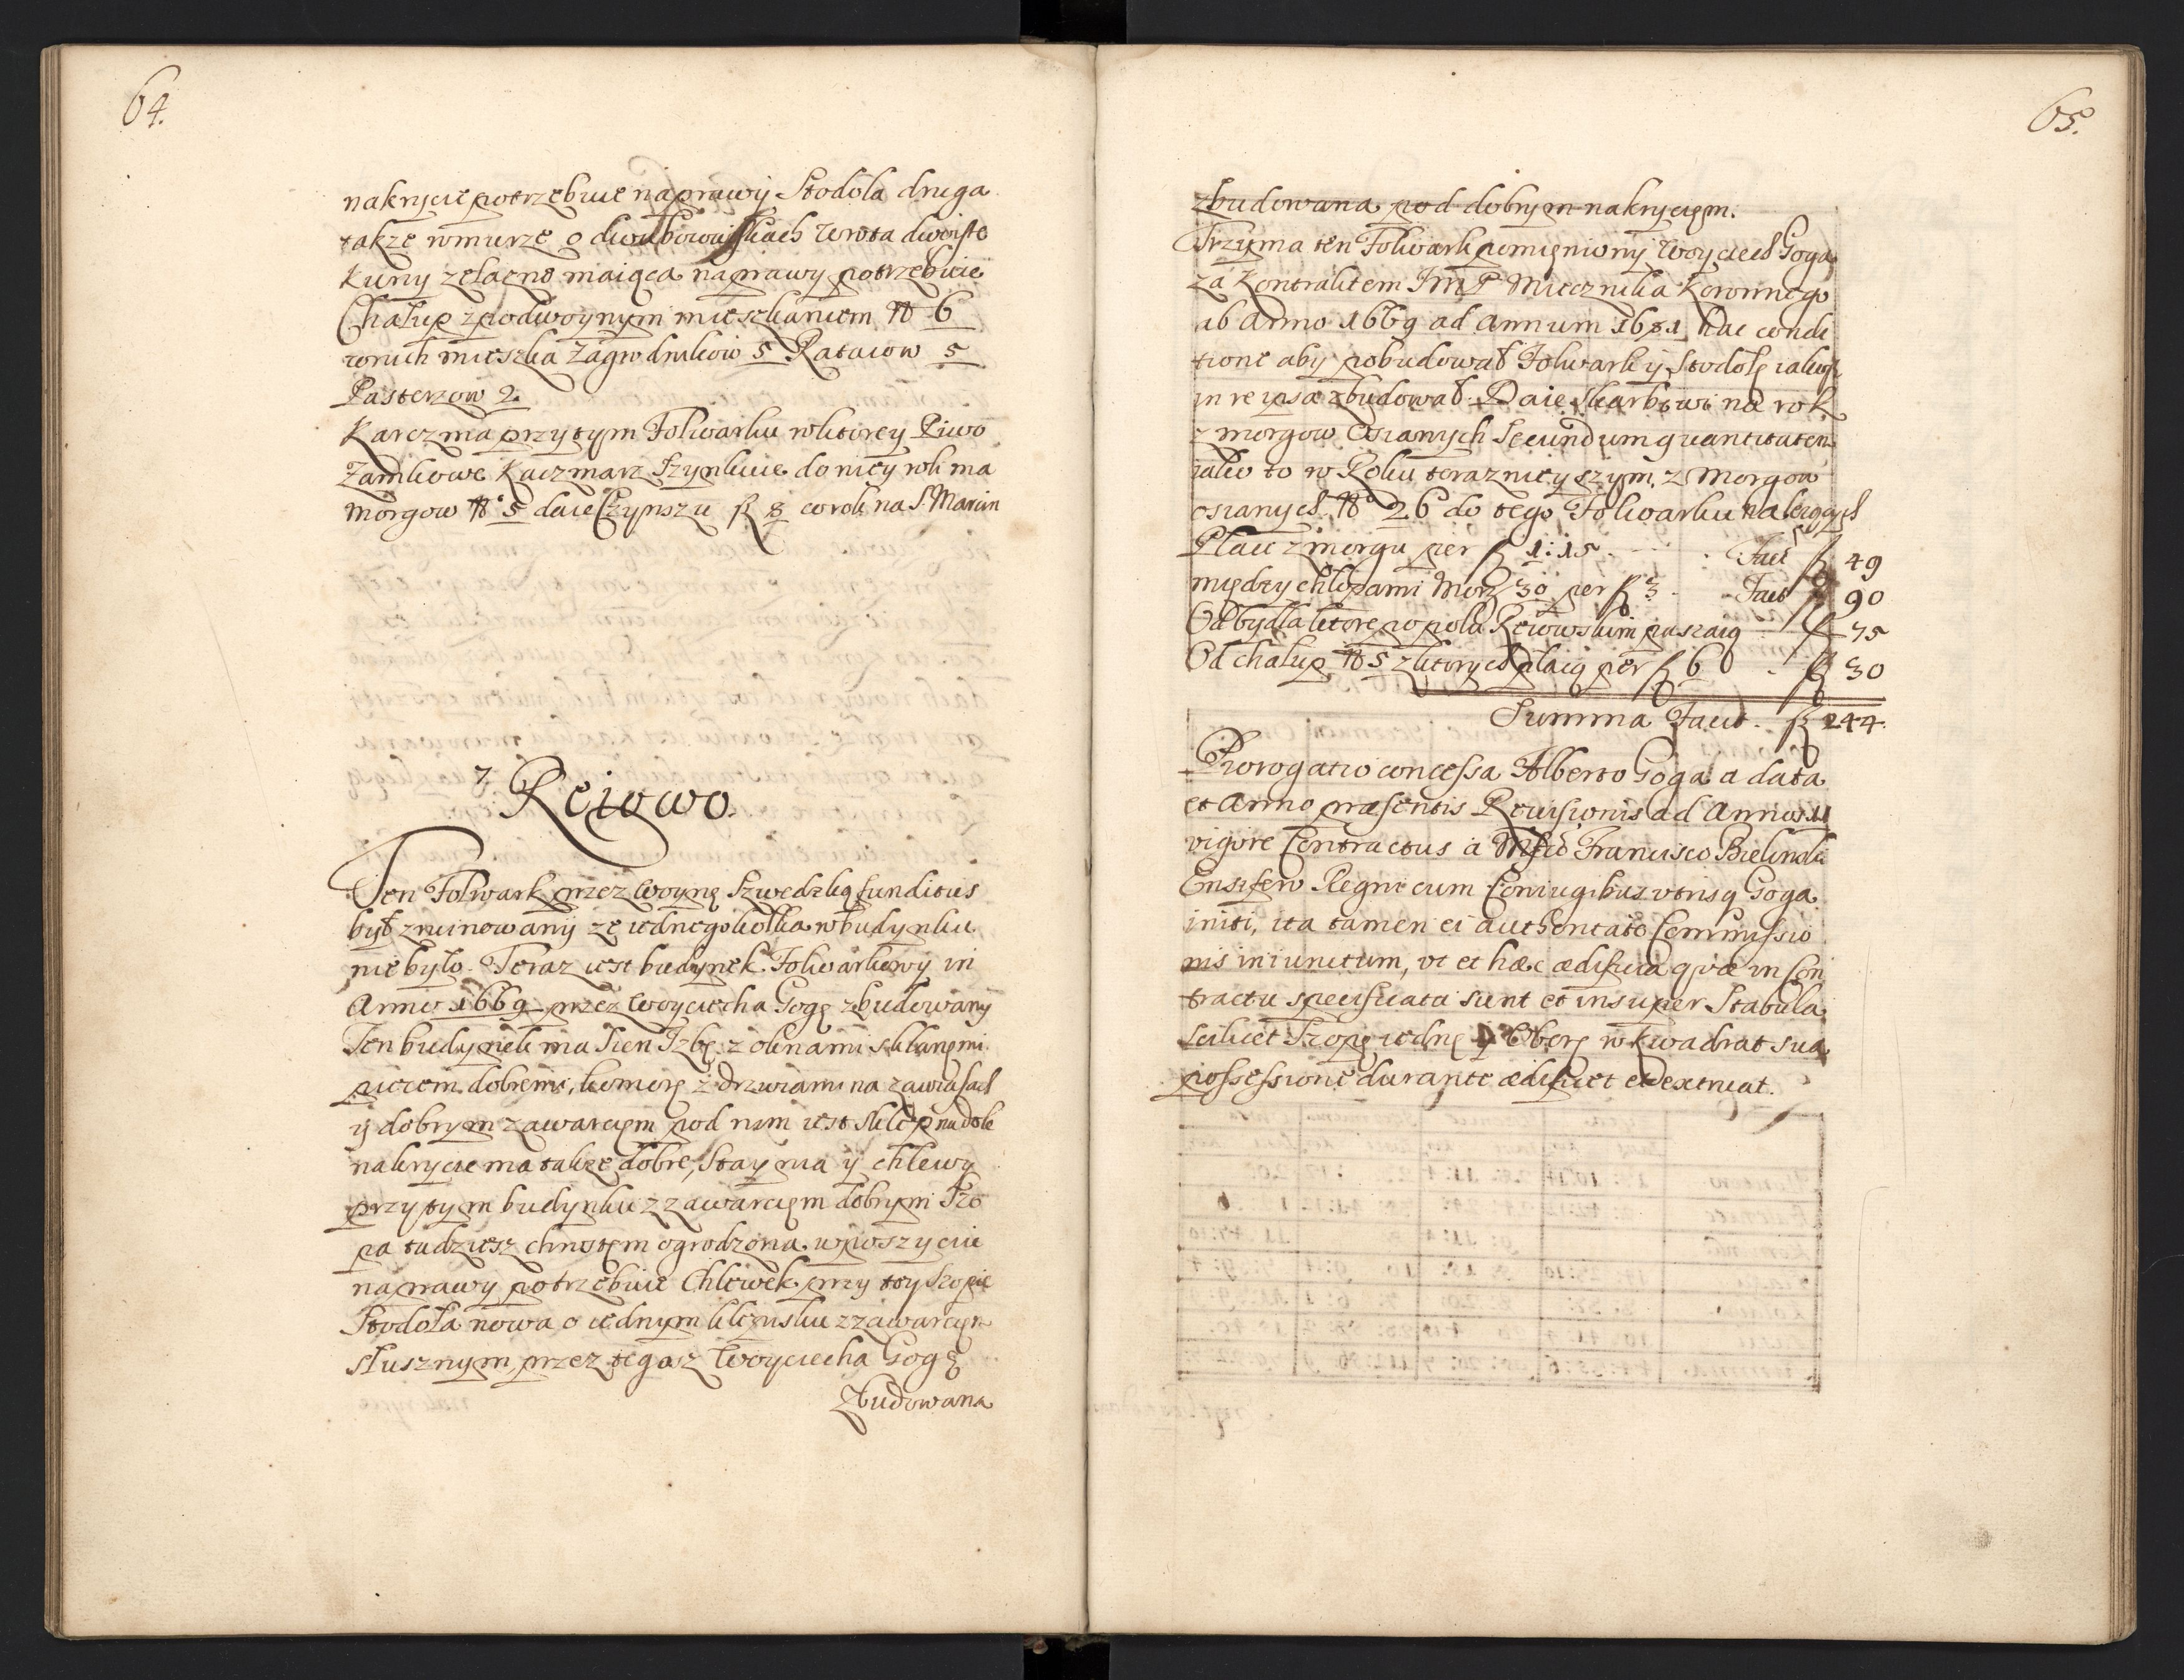 64.
nakrycie potrzebuie naprawy Stodola druga
takze w murze o dwu bowiskach wrota dwoiste
Kuny zelazne maiąca naprawy potrzebuie
Chałup z podwoynym mieszkaniem No 6
w ktorich mieszka Zagrodnikow 5 Rataiow 5
Pasterzow 2.
Karczma przy tym Folwarku w ktorey Piwo
Zamkowe Kaczmarz szynkuie do niey roli ma
morgow No 5 daie Czynszu fl 8 co rok na S. Marcin
7. Reiowo.
Ten Folwark przez woynę Szwedzką funditus
był zruinowany ze iednego kołka w budynku
nie było. Teraz iest budynek Folwarkowy in
Anno 1669 przez Woyciecha Gogę zbudowany
Ten budynek ma Sien Izbę z oknami szklanęmi
piecem dobremi, komorę z drzwiami na zawiasach
ÿ dobrym zawarcięm pod nim iest sklep na dole
nakrycie ma takze dobre, Stayma ÿ chlewy
przy tym budynku z zawarcięm dobrym Szo
pa tudziesz chrostęm ogrodzona w poszyciu
naprawy potrzebuie Chlewek przy tey szopie
Stodoła nowa o iednym klepisku z zawarcięm
słusznym przez tegosz Woyciecha Gogę
Zbudowana
65.
zbudowana pod dobrym nakrycięm.
Trzyma ten Folwark pomięniony Woyciech Goga
za Kontraktem JmP Miecznika Koronnego
ab Anno 1669 ad Annum 1681 hac condi
tione aby pobudował Folwark ÿ Stodołę iakosz
in re ipsa zbudował. Daie Skarbowi na rok
z morgow Osianych Secundum quantitatem
iako to w Roku teraznieyszym z Morgow
osianych No 26 do tego Folwarku należących
Płaci z morgu per fl 1:15 Facit fl 49
między chłopami Morg 30 per fl 3 Facit fl 90
Od bydła ktore po polu Reiowskim pasaią fl 75
Od chałup No 5 z ktorych płacą per fl 6 fl 30
Summa Facit fl 244.
Prorogatio concessa Alberto Goga a data
et Anno præsentis Revisionis ad Annos
vigore Contractus a Francisco Bielinski
Ensifero Regni cum Coniugibus utrisq Goga
initi, ita tamen ei authentate Commissio
nis iniunctum, vt et hæc ædificia quæ in Con
tractu specificata sunt et insuper Stabula
scilicet Szopę iednę ÿ Oborę w kwadrat sua
possessione durante ædificet et extruat.